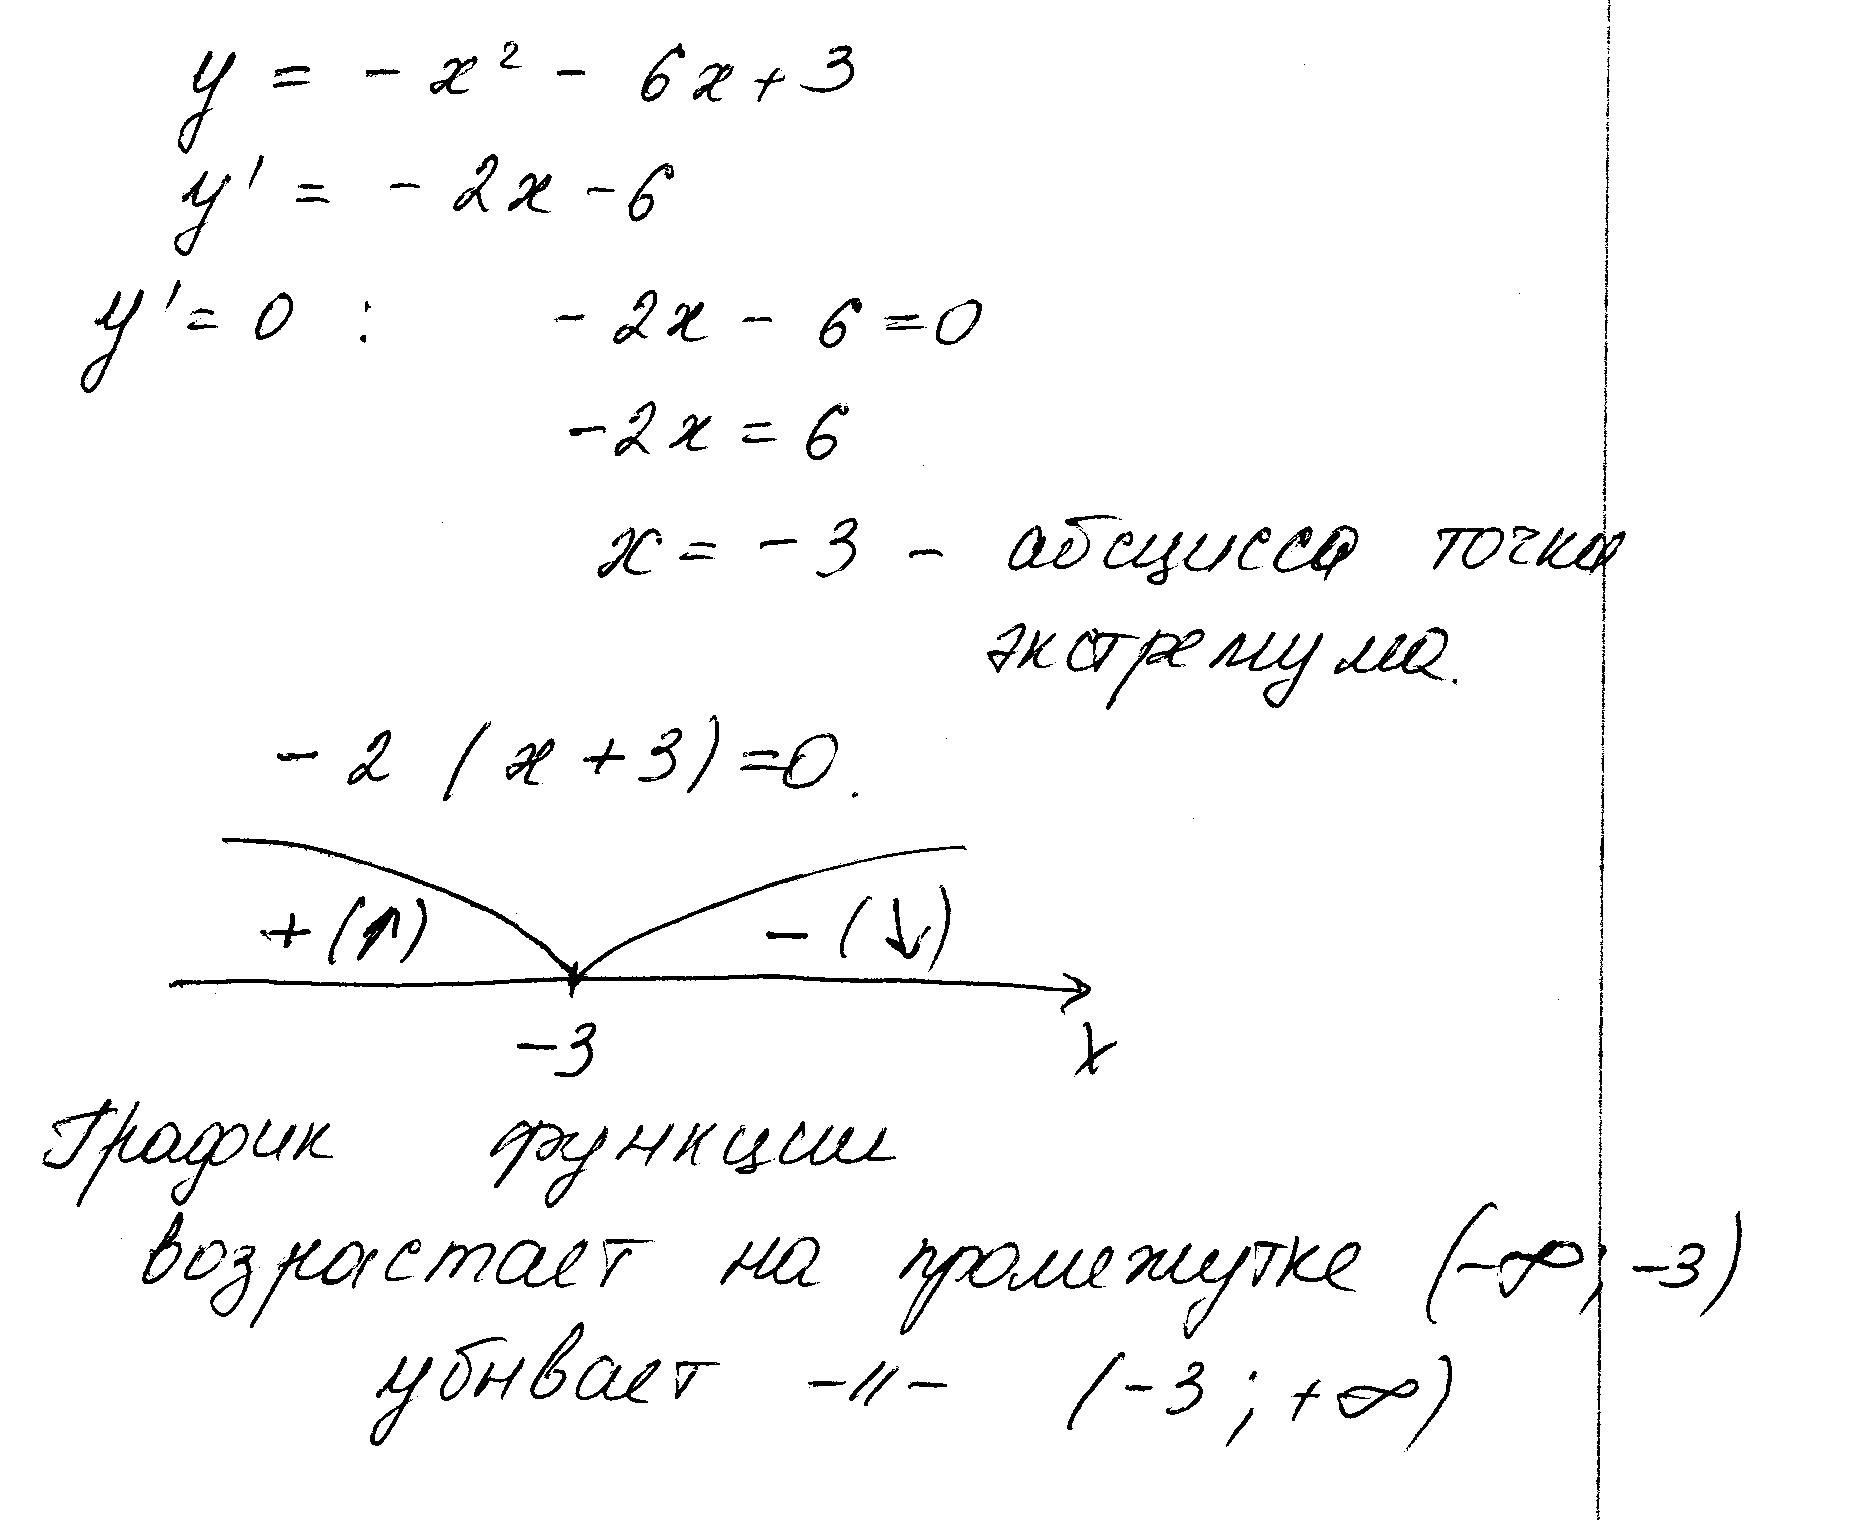 y = - x² - 6x + 3
y' = - 2x - 6
y' = 0 : - 2x - 6 = 0
-2x = 6
x = - 3 - абсцисса точки
экстремума.
- 2 (x + 3) = 0.
+ (↑) - (↓)
-3 x
График функции
возрастает на промежутке (-∞; -3)
убывает -//- (-3; +∞)